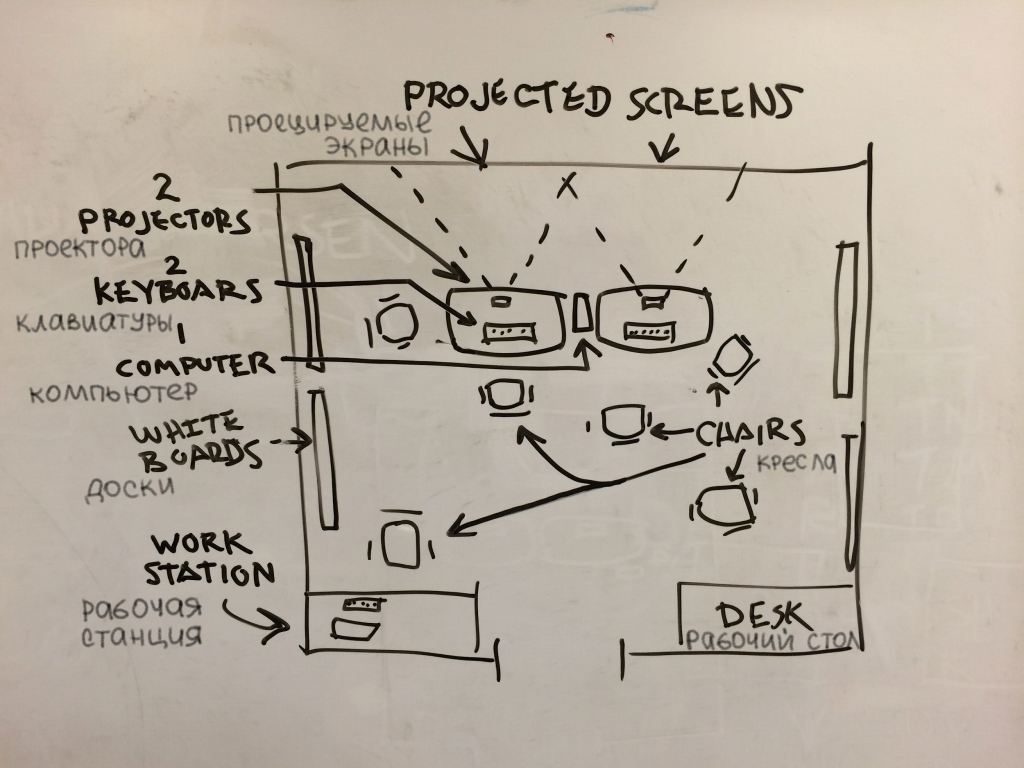 PROJECTED SCREENS
ПРОЕЦИРУЕМЫЕ
ЭКРАНЫ
2
PROJECTORS
ПРОЕКТОРА
2
KEYBOARS
КЛАВИАТУРЫ
1
COMPUTER
КОМПЬЮТЕР
WHITE
BOARDS
ДОСКИ
CHAIRS
КРЕСЛА
WORK
STATION
РАБОЧАЯ
СТАНЦИЯ
DESK
РАБОЧИЙ СТОЛ